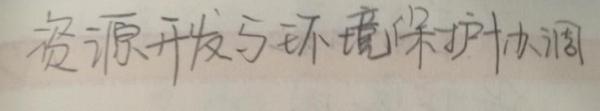 资源开发与环境保护协调